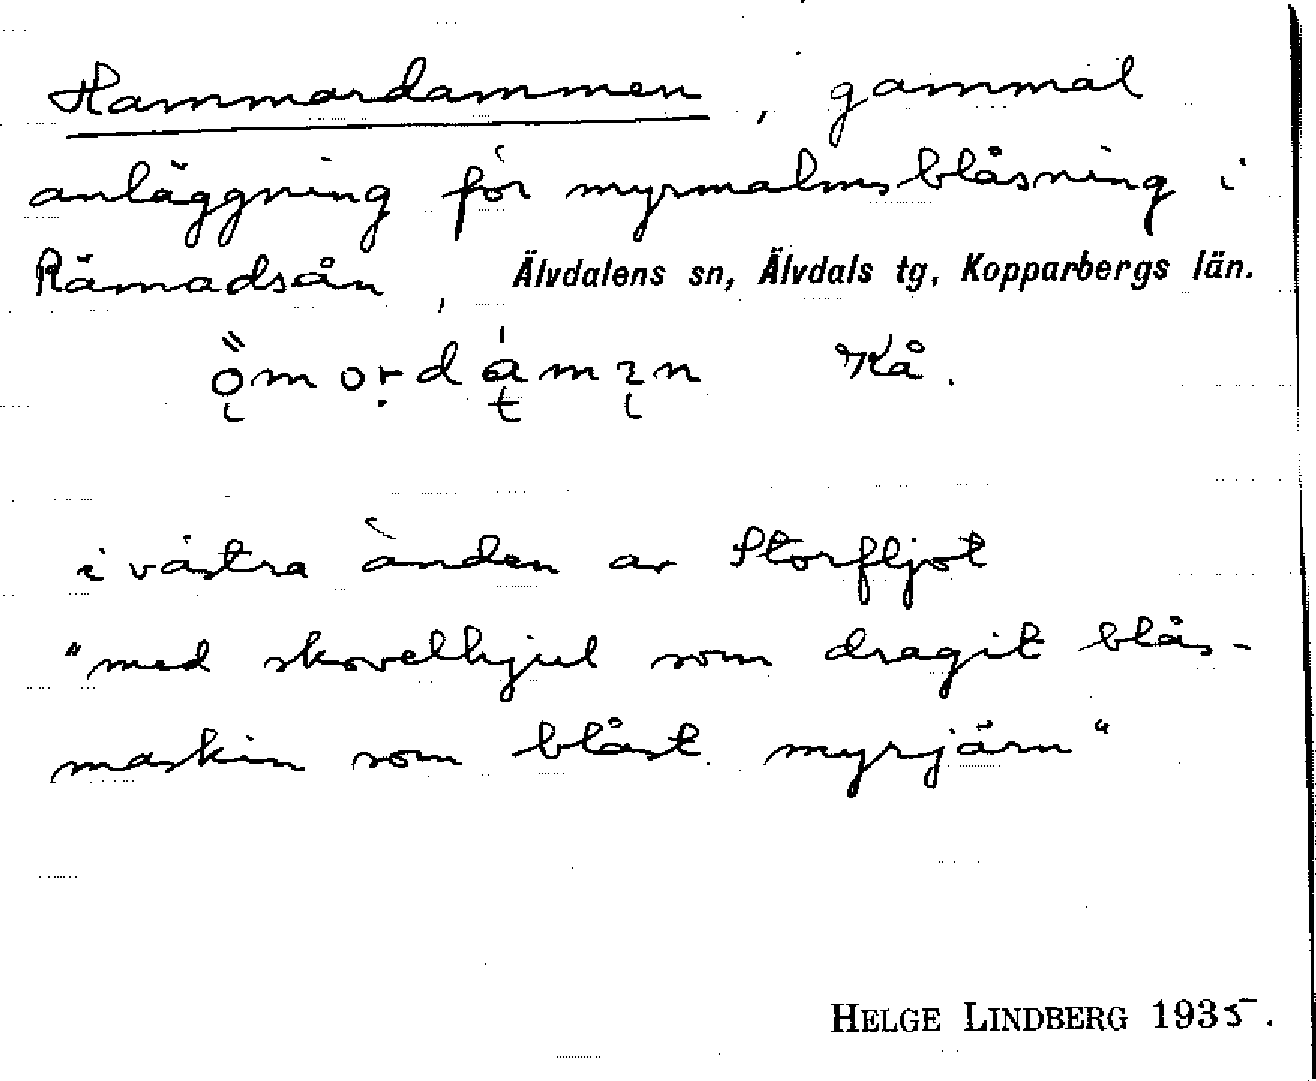 Hammardammen, gammal
anläggning för myrmalmsblåsning i
Rämadsån, Älvdalens sn, Älvdals tg, Kopparbergs län.
Kå.
i västra änden av Storfljot
"med skovelhjul som dragit blås-
maskin som blåst myrjärn"
HELGE LINDBERG 1935.